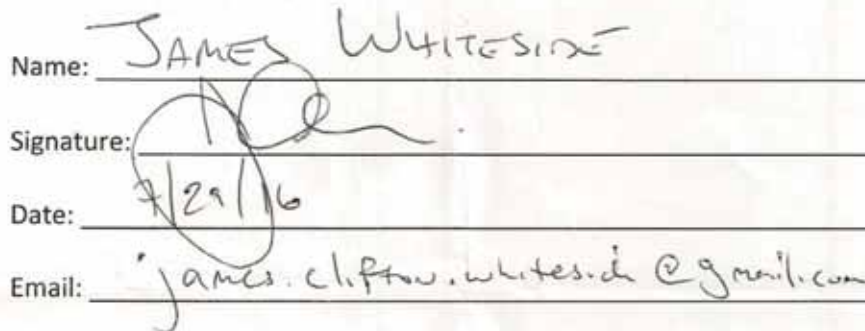 Name: JAMES WHITESIDE
Signature:
Date: 7/29/16
Email: james.clifton.whiteside@gmail.com